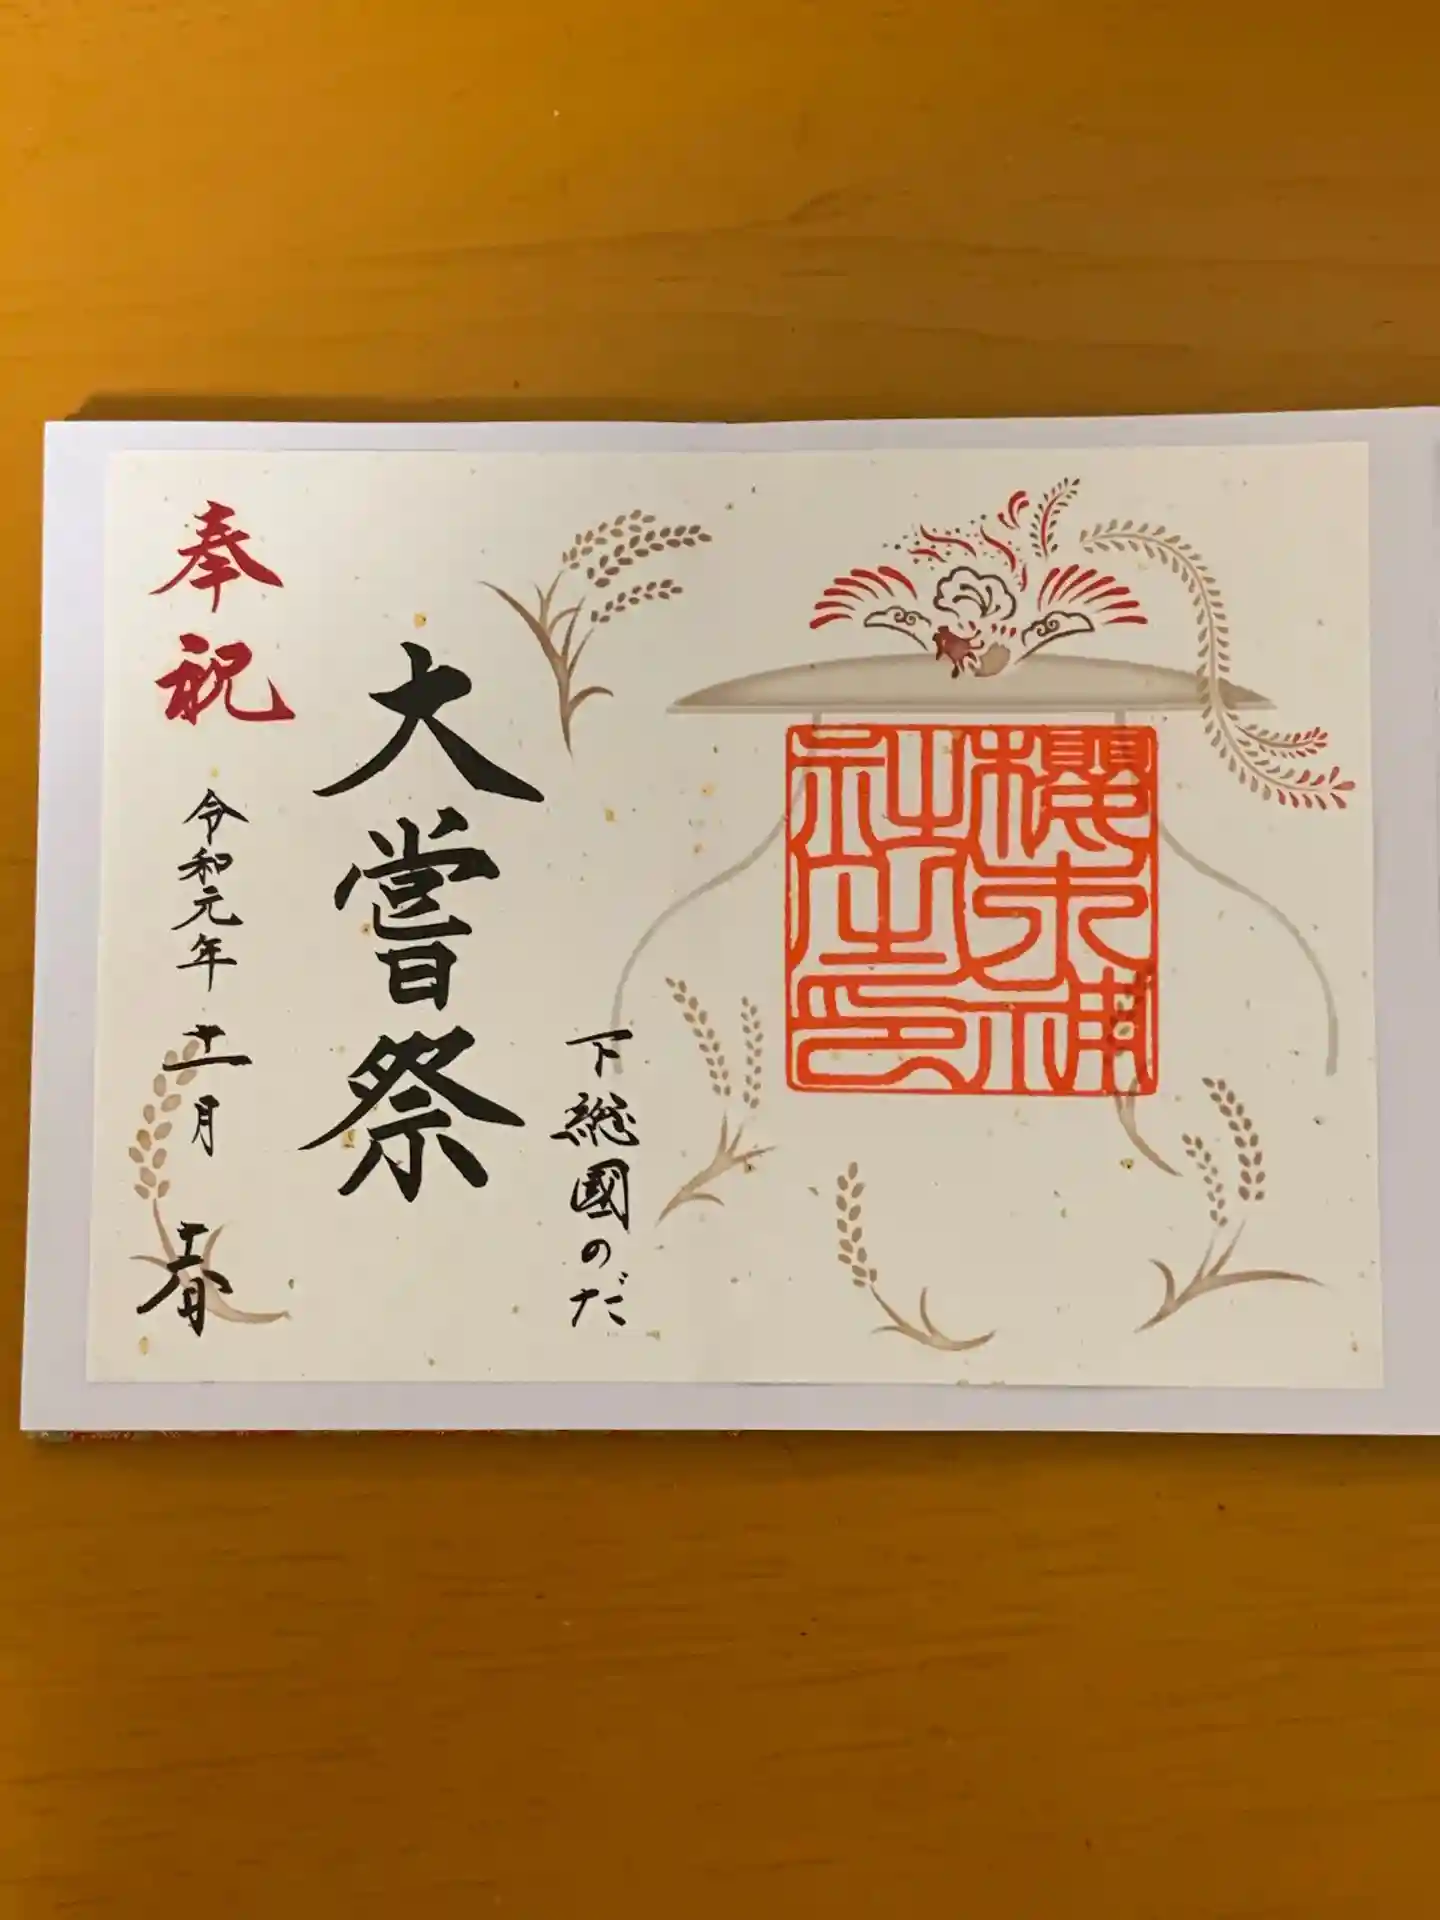 櫻木神
社之印
下総國のだ
大嘗祭
奉祝
令和元年十一月十六日